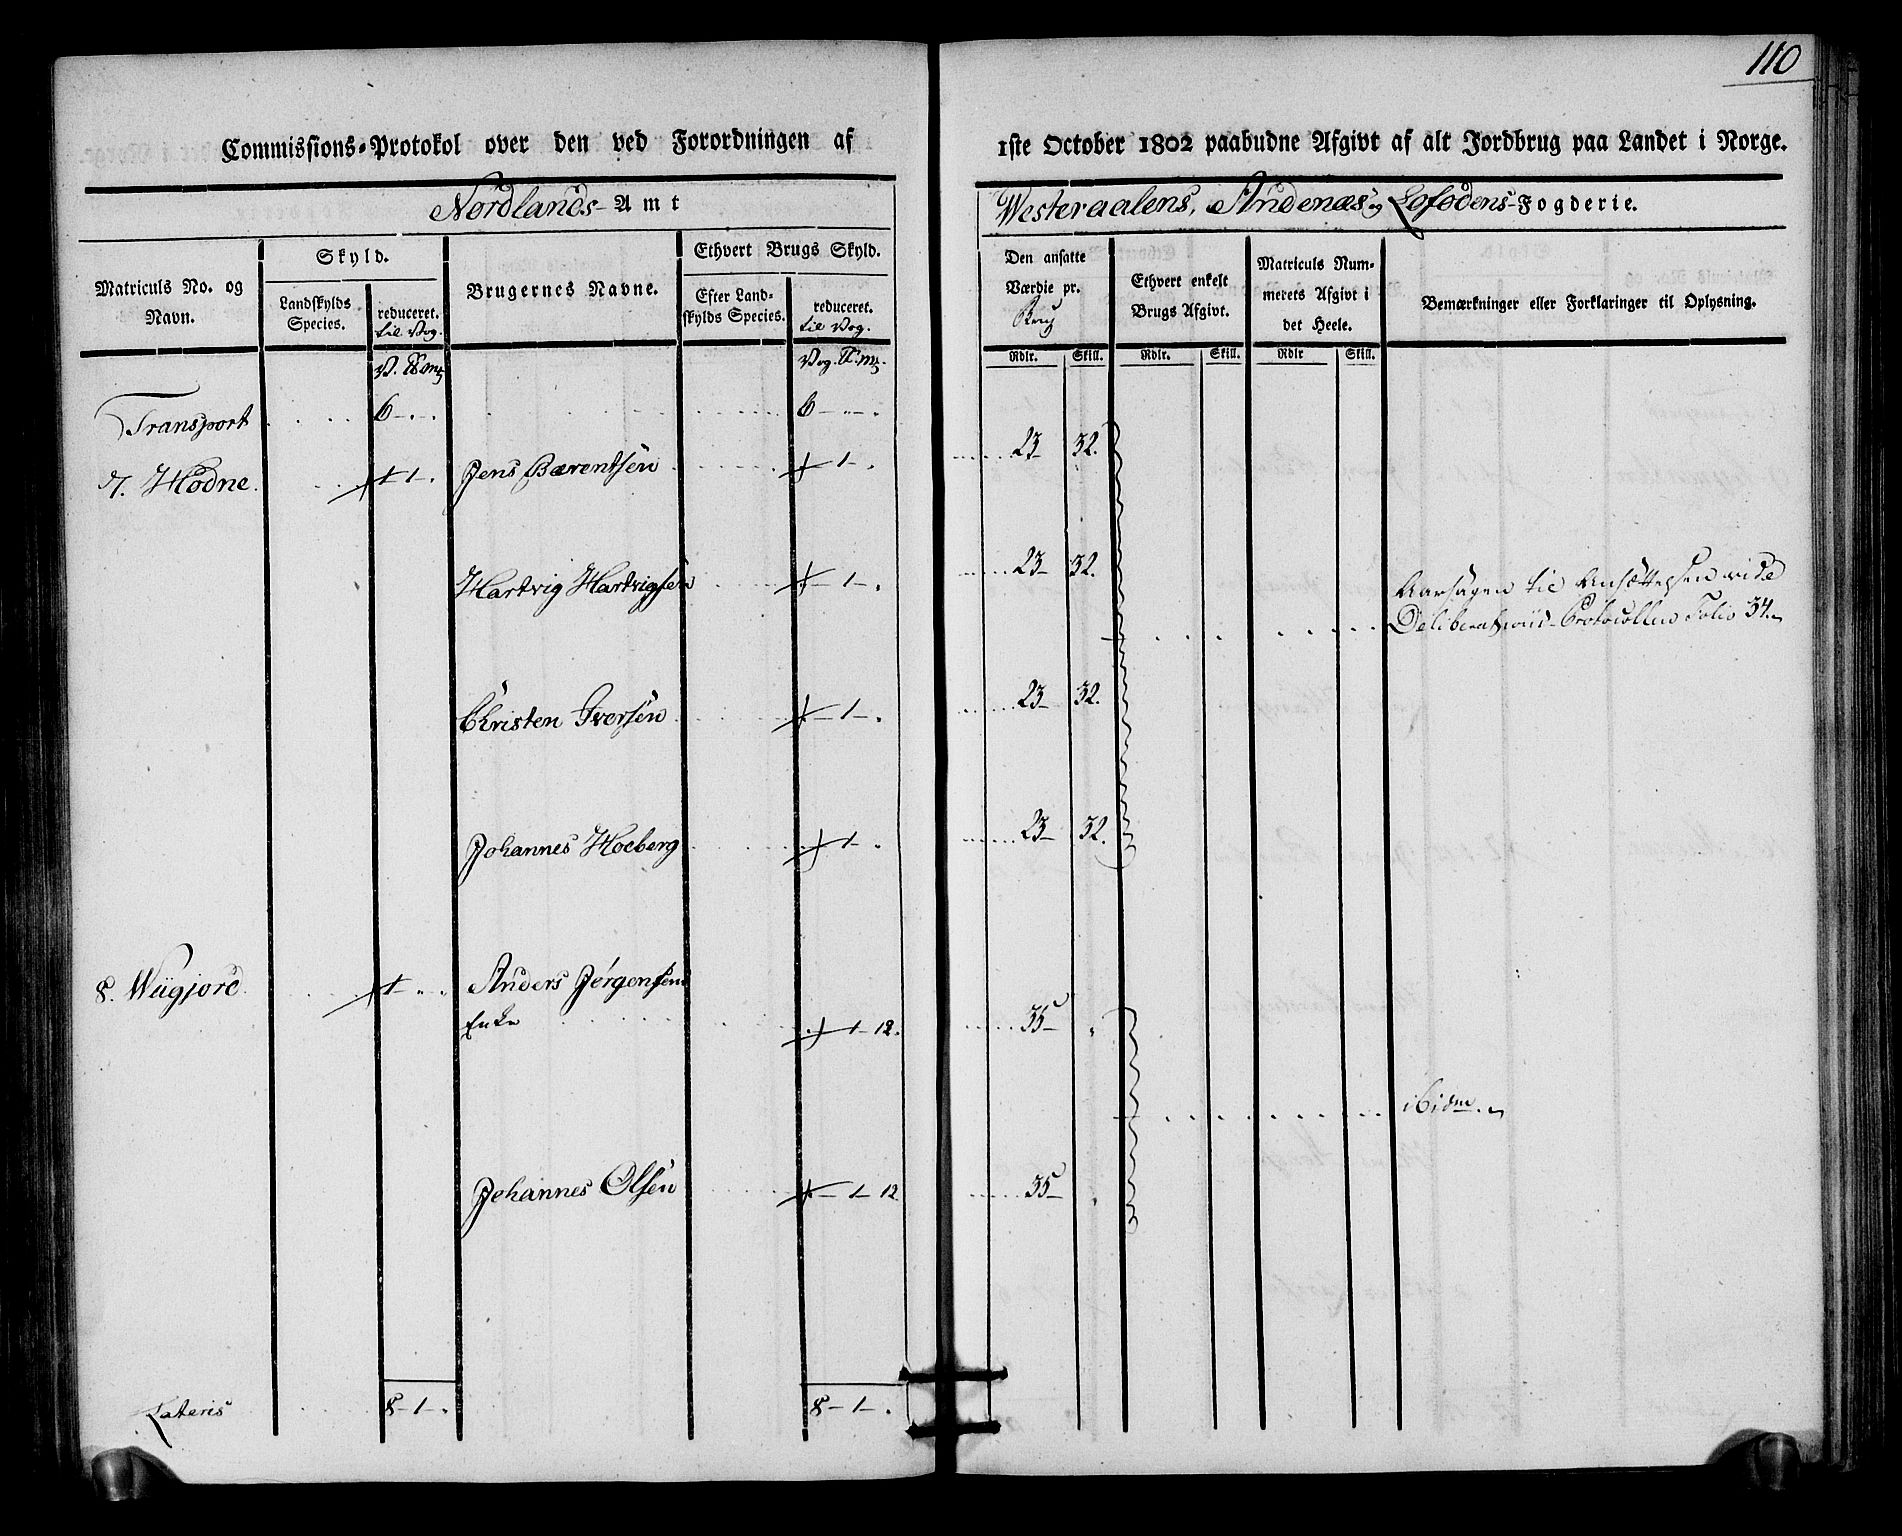 110
Commissions-Protokol over den ved Forordningen af
1ste October 1802 paabudne Afgivt af alt Jordbrug paa Landet i Norge.
Nordlands-Amt
Westeraalens, Andenæs og Lofodens-Fogderie.
Matriculs No. og Navn.
Skyld.
Landskylds Species.
reduceret. til Vog.
Brugernes Navne.
Ethvert Brugs Skyld.
Efter Landskylds Species.
reduceret. til Vog.
Den ansatte Værdie pr.
Ethvert enkelt Brugs Afgivt.
Matriculs Nummerets Afgivt i det Heele.
Bemærkninger eller Forklaringer til Oplysning.
Rdlr. Skill. Rdlr. Skill. Rdlr Skill.
Transport 6 - " - " 6 - " - "
7. Hodne 1 1 " Jens Bærentsen 1 - " 23 - 32.
Hartvig Hartvigsen - 1 - " 23 - 32.
Aarsagen til Ansættelsen vide
Deliberations-Protocollen Folio 34.
Christen Iversen - 1 - " 23 - 32.
Johannes Hoeberg 1 - " 23 - 32.
8. Wiigjord 1 - " - " Anders Jørgensens
Enke 1 - 12. 35 - "
ibidm.
Johannes Olsen - 1 - 12 35 - "
Lateris 8 - 1 - " 8 - 1 - "